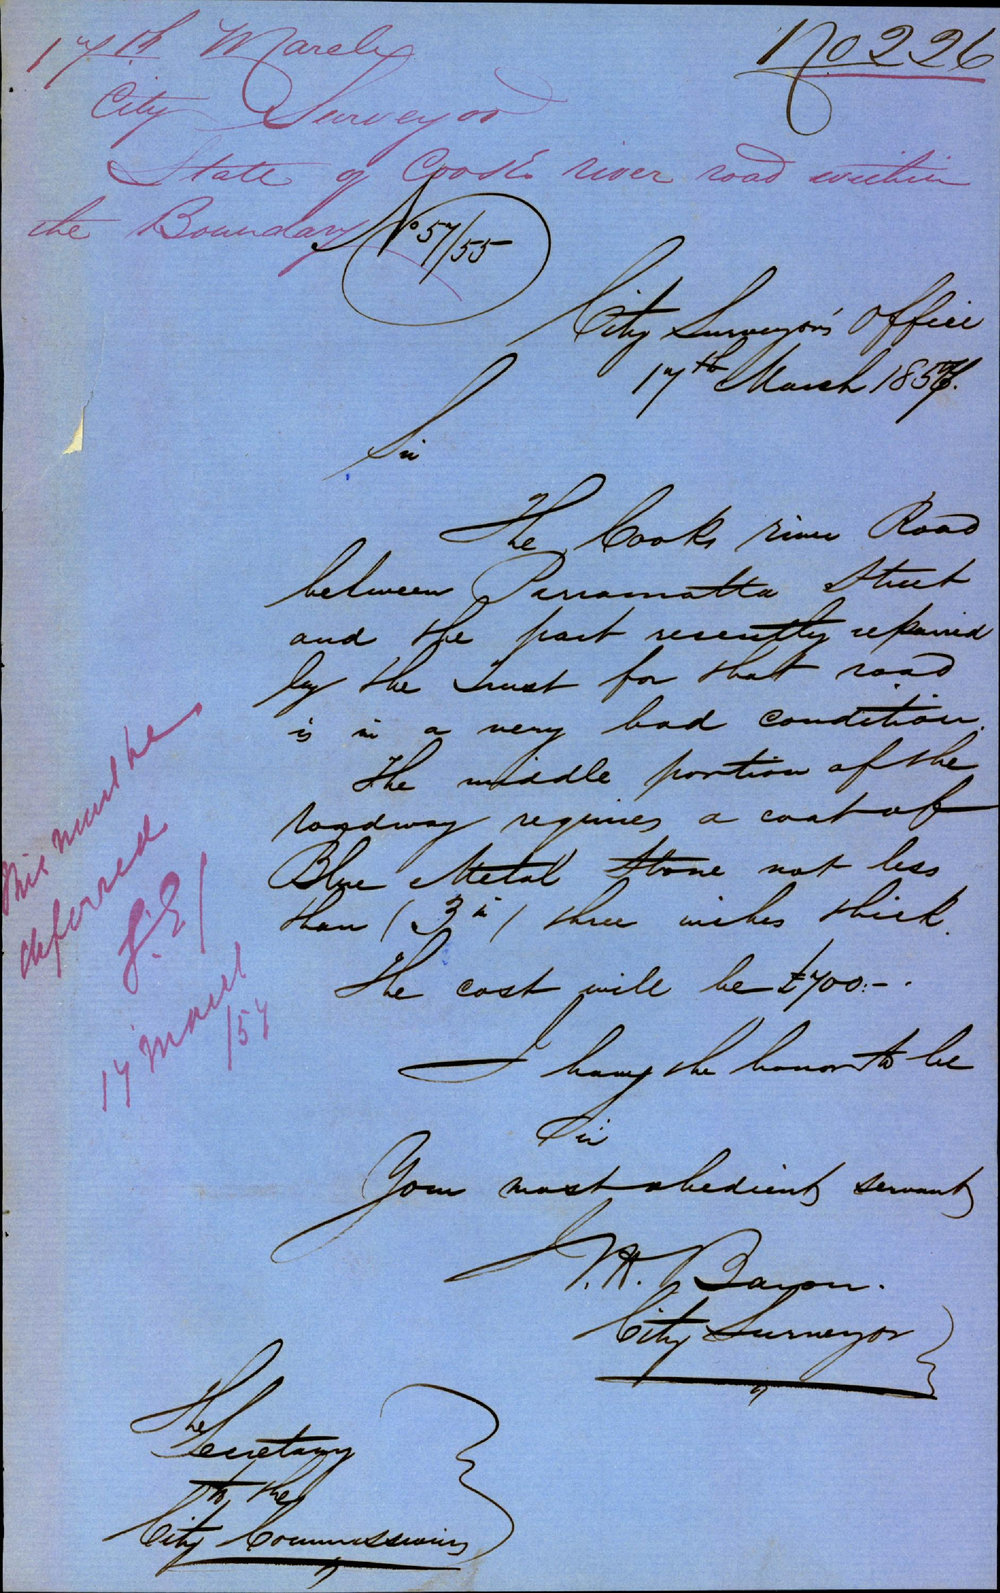 17th March
No 226
City Surveyor
State of Cooks river road within
the Boundary
No 57/55
City Surveyor's Office
17th March 1857.
Sir
The Cooks river Road
between Parramatta Street
and the part recently repaired
by the Trust for that road
is in a very bad condition.
The middle portion of the
roadway requires a coat of
Blue Metal Stone not less
than (3 in) three inches thick.
The cost will be £700:-.
I have the honor to be
Sir
Your most obedient servant
City Surveyor
This must be
deferred
17 March
/57
The
Secretary
to the
City Commissioners